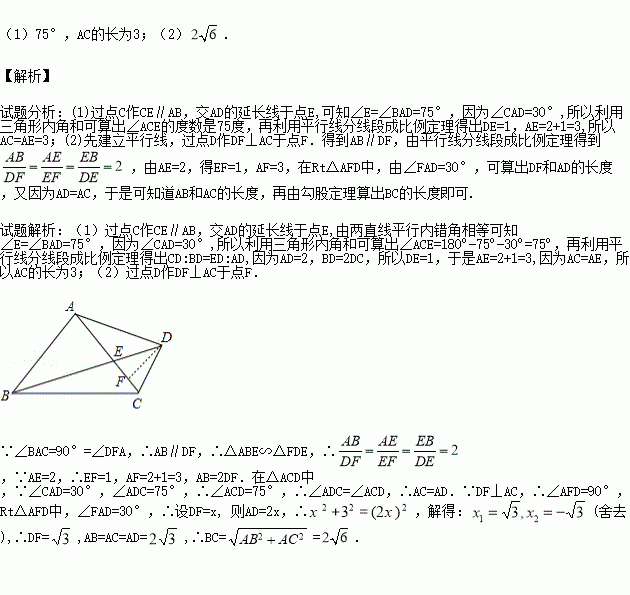 (1)75°,AC的长为3;(2)2√6.
【解析】
试题分析:(1)过点C作CE∥AB,交AD的延长线于点E,可知∠E=∠BAD=75°,因为∠CAD=30°,所以利用
三角形内角和可算出∠ACE的度数是75度,再利用平行线分线段成比例定理得出DE=1,AE=2+1=3,所以
AC=AE=3;(2)先建立平行线,过点D作DF⊥AC于点F.得到AB∥DF,由平行线分线段成比例定理得到
AB/DF=AE/EF=EB/DE=2,由AE=2,得EF=1,AF=3,在Rt△AFD中,由∠FAD=30°,可算出DF和AD的长度
,又因为AD=AC,于是可知道AB和AC的长度,再由勾股定理算出BC的长度即可.
试题解析:(1)过点C作CE∥AB,交AD的延长线于点E,由两直线平行内错角相等可知
∠E=∠BAD=75°,因为∠CAD=30°,所以利用三角形内角和可算出∠ACE=180°-75°-30°=75°,再利用平
行线分线段成比例定理得出CD:BD=ED:AD,因为AD=2,BD=2DC,所以DE=1,于是AE=2+1=3,因为AC=AE,所
以AC的长为3;(2)过点D作DF⊥AC于点F.
A
D
E
F
B
C
∵∠BAC=90°=∠DFA,∴AB∥DF,∴△ABE∽△FDE,∴AB/DF=AE/EF=EB/DE=2
,∵AE=2,∴EF=1,AF=2+1=3,AB=2DF.在△ACD中
,∵∠CAD=30°,∠ADC=75°,∴∠ACD=75°,∴∠ADC=∠ACD,∴AC=AD.∵DF⊥AC,∴∠AFD=90°,
Rt△AFD中,∠FAD=30°,∴设DF=x,则AD=2x,∴x²+3²=(2x)²,解得:x₁=√3,x₂=-√3(舍去
),∴DF=√3,AB=AC=AD=2√3,∴BC=√(AB²+AC²)=2√6.